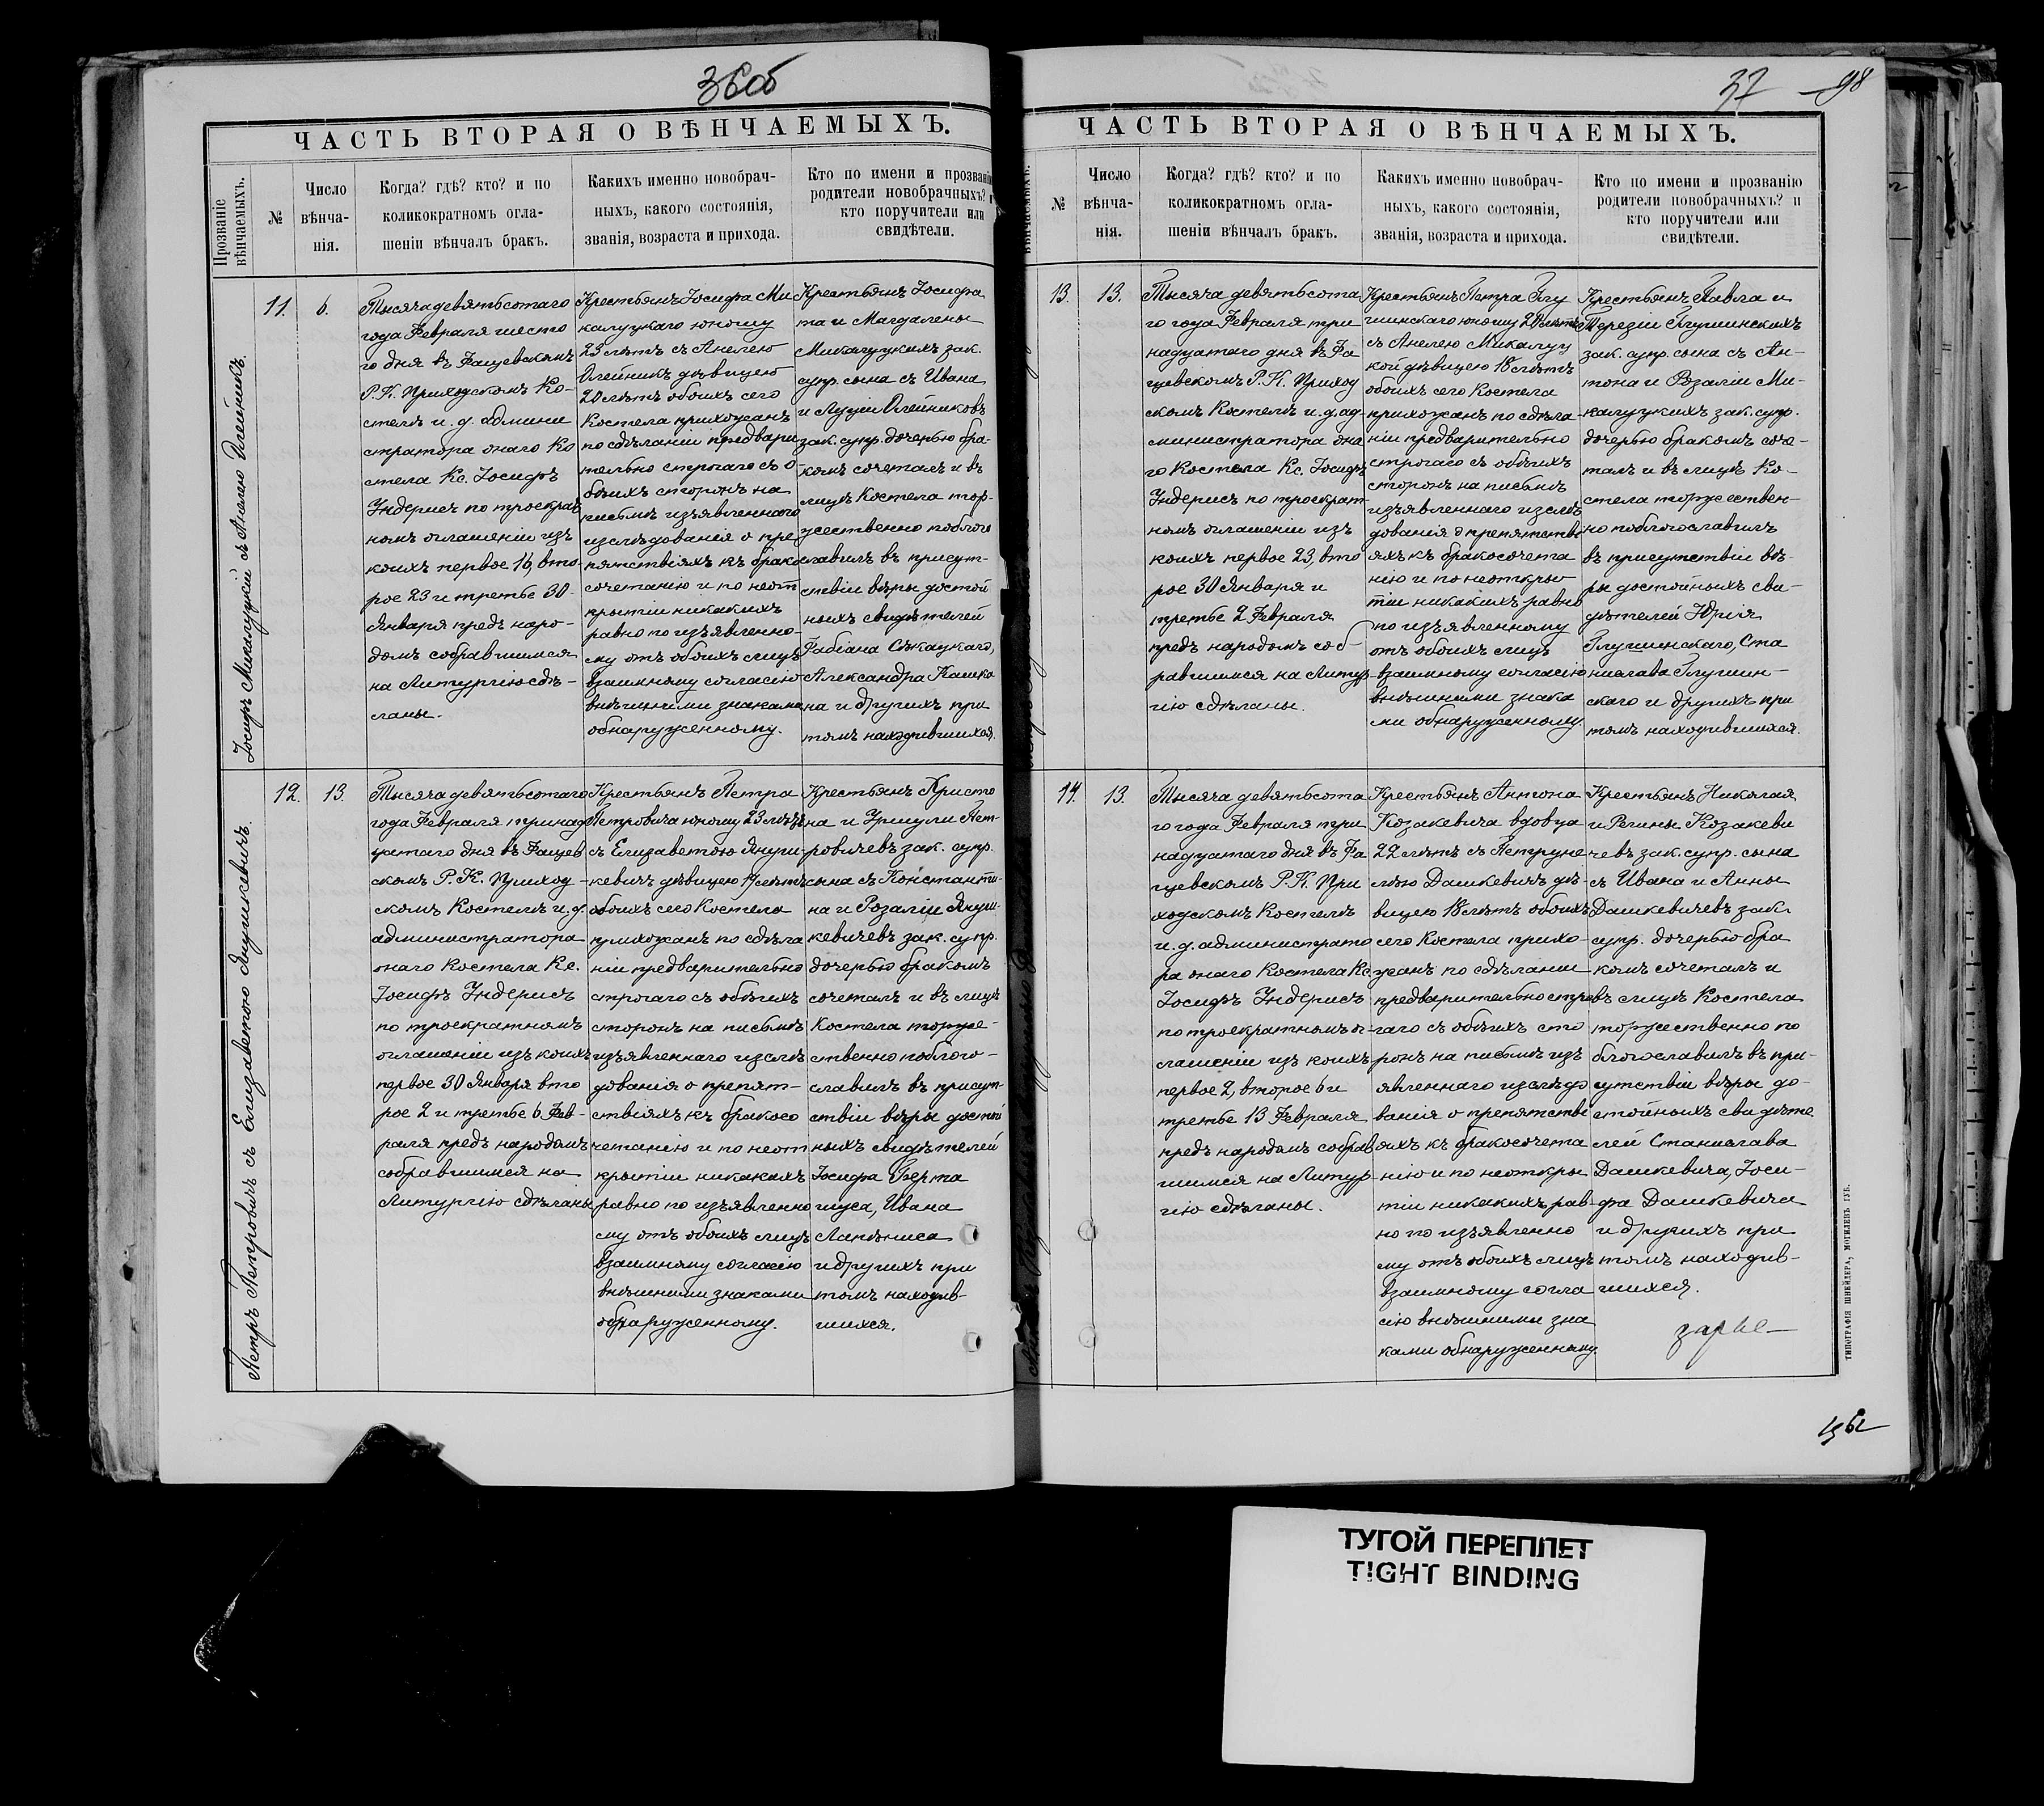 36об
ЧАСТЬ ВТОРАЯ О ВѢНЧАЕМЫХЪ.
Прозваніе
вѣнчаемыхъ.
№
Число
вѣнча-
нія.
Когда? гдѣ? кто? и по
коликократномъ огла-
шеніи вѣнчалъ бракъ.
Какихъ именно новобрач-
ныхъ, какого состоянія,
званія, возраста и прихода.
Кто по имени и прозванію
родители новобрачныхъ? и
кто поручители или
свидѣтели.
Іосифъ Микалуцкій съ Анелею Олейникъ.
11.
6.
Тысяча девятьсотаго
года Февраля шесто
го дня въ Фащевскомъ
Р.К. Приходскомъ Ко-
стелѣ и. д. админи
стратора онаго Ко
стела Кс. Іосифъ
Индерисъ по троекрат
номъ оглашеніи изъ
коихъ первое 16, вто-
рое 23 и третье 30
Января предъ наро-
домъ собравшимся
на Литургію сдѣ-
ланы.
Крестьянъ Іосифа Ми
калуцкаго юношу
23 лѣтъ съ Анелею
Олейникъ дѣвицею
20 лѣтъ обоихъ сего
Костела прихожанъ
по сдѣланіи предвари
тельно строгаго съ о-
боихъ сторонъ на
письмѣ изъявленнаго
изслѣдованія о пре
пятствіяхъ къ брако
сочетанію и по неот
крытіи никакихъ
равно по изъявленно-
му отъ обоихъ лицъ
взаимному согласію
внѣшними знаками
обнаруженному.
Крестьянъ Іосифа
та и Магдалены
Микалуцкихъ зак.
супр. сына съ Ивана
и Луціи Олейниковъ
зак. супр. дочерью бра-
комъ сочеталъ и въ
лицѣ Костела тор-
жественно поблаго
славилъ въ присут-
ствіи вѣры достой
ныхъ свидѣтелей
Фабіана Сѣкацкаго,
Александра Кашка
на и другихъ при
томъ находившихся.
Петръ Петровичъ съ Елизаветою Янушкевичъ.
12.
13.
Тысяча девятьсотаго
года Февраля тринад
цатаго дня въ Фащев
скомъ Р.К. Приход-
скомъ Костелѣ и. д.
администратора
онаго Костела Кс.
Іосифъ Индерисъ
по троекратномъ
оглашеніи изъ коихъ
первое 30 Января вто
рое 2 и третье 6 Фев-
раля предъ народомъ
собравшимся на
Литургію сдѣланы
Крестьянъ Петра
Петровича юношу 23 лѣтъ
съ Елизаветою Януш-
кевичъ дѣвицею 17 лѣтъ
обоихъ сего Костела
прихожанъ по сдѣла
ніи предварительно
строгаго съ обѣихъ
сторонъ на письмѣ
изъявленнаго изслѣ
дованія о препят-
ствіяхъ къ бракосо
четанію и по неот
крытіи никакихъ
равно по изъявленно
му отъ обоихъ лицъ
взаимному согласію
внѣшними знаками
обнаруженному.
Крестьянъ Христо
на и Уршули Пет-
ровичевъ зак. супр.
сына съ Константи-
на и Розаліи Януш-
кевичевъ зак. супр.
дочерью бракомъ
сочеталъ и въ лицѣ
Костела торже-
ственно поблаго-
славилъ въ присут-
ствіи вѣры достой
ныхъ свидѣтелей
Іосифа Берта
шуса, Ивана
Лапѣниса
и другихъ при
томъ находив-
шихся.
37
98
ЧАСТЬ ВТОРАЯ О ВѢНЧАЕМЫХЪ.
вѣнчаемыхъ.
№
Число
вѣнча-
нія.
Когда? гдѣ? кто? и по
коликократномъ огла-
шеніи вѣнчалъ бракъ.
Какихъ именно новобрач-
ныхъ, какого состоянія,
званія, возраста и прихода.
Кто по имени и прозванію
родители новобрачныхъ? и
кто поручители или
свидѣтели.
13.
13.
Тысяча девятьсота
го года Февраля три
надцатаго дня въ Фа
щевскомъ Р.К. Приход
скомъ Костелѣ и. д. ад-
министратора она
го Костела Кс. Іосифъ
Индерисъ по троекрат
номъ оглашеніи изъ
коихъ первое 23, вто
рое 30 Января и
третье 2 Февраля
предъ народомъ соб
равшимся на Литур
гію сдѣланы.
Крестьянъ Петра Глу
шинскаго юношу 20 лѣтъ
съ Анелею Микалуц
кой дѣвицею 18 лѣтъ
обоихъ сего Костела
прихожанъ по сдѣла-
ніи предварительно
строгаго съ обѣихъ
сторонъ на письмѣ
изъявленнаго изслѣ
дованія о препятстві
яхъ къ бракосочета
нію и по неоткры
тіи никакихъ равно
по изъявленному
отъ обоихъ лицъ
взаимному согласію
внѣшними знака
ми обнаруженному.
Крестьянъ Павла и
Терезіи Глушинскихъ
зак. супр. сына съ Ан-
тона и Розаліи Ми-
калуцкихъ зак. супр.
дочерью бракомъ соче-
талъ и въ лицѣ Ко-
стела торжествен-
но поблагославилъ
въ присутствіи вѣ-
ры достойныхъ сви-
дѣтелей Юрія
Глушинскаго, Ста
нислава Глушин-
скаго и другихъ при
томъ находившихся.
14.
13.
Тысяча девятьсота
го года Февраля три
надцатаго дня въ Фа
щевскомъ Р.К. При
ходскомъ Костелѣ
и. д. администрато
ра онаго Костела Кс.
Іосифъ Индерисъ
по троекратномъ о-
глашеніи изъ коихъ
первое 2, второе 6 и
третье 13 Февраля
предъ народомъ собрав
шимся на Литур
гію сдѣланы.
Крестьянъ Антона
Козакевича вдовца
22 лѣтъ съ Петруне
лѣю Дашкевичъ дѣ-
вицею 18 лѣтъ обоихъ
сего Костела прихо-
жанъ по сдѣланіи
предварительно стро
гаго съ обѣихъ сто
ронъ на письмѣ изъ
явленнаго изслѣдо
ванія о препятстві
яхъ къ бракосочета
нію и по неоткры
тіи никакихъ рав-
но по изъявленно
му отъ обоихъ лицъ
взаимному согла
сію внѣшними зна
ками обнаруженному
Крестьянъ Николая
и Регины Козакеви
чевъ зак. супр. сына
съ Ивана и Анны
Дашкевичевъ зак.
супр. дочерью бра
комъ сочеталъ и
въ лицѣ Костела
торжественно по
благославилъ въ при-
сутствіи вѣры до-
стойныхъ свидѣте
лей Станислава
Дашкевича, Іоси-
фа Дашкевича
и другихъ при
томъ находив-
шихся.
ТИПОГРАФІЯ ШНЕЙДЕРА, МОГИЛЕВЪ ГУБ.
ТУГОЙ ПЕРЕПЛЕТ
TIGHT BINDING